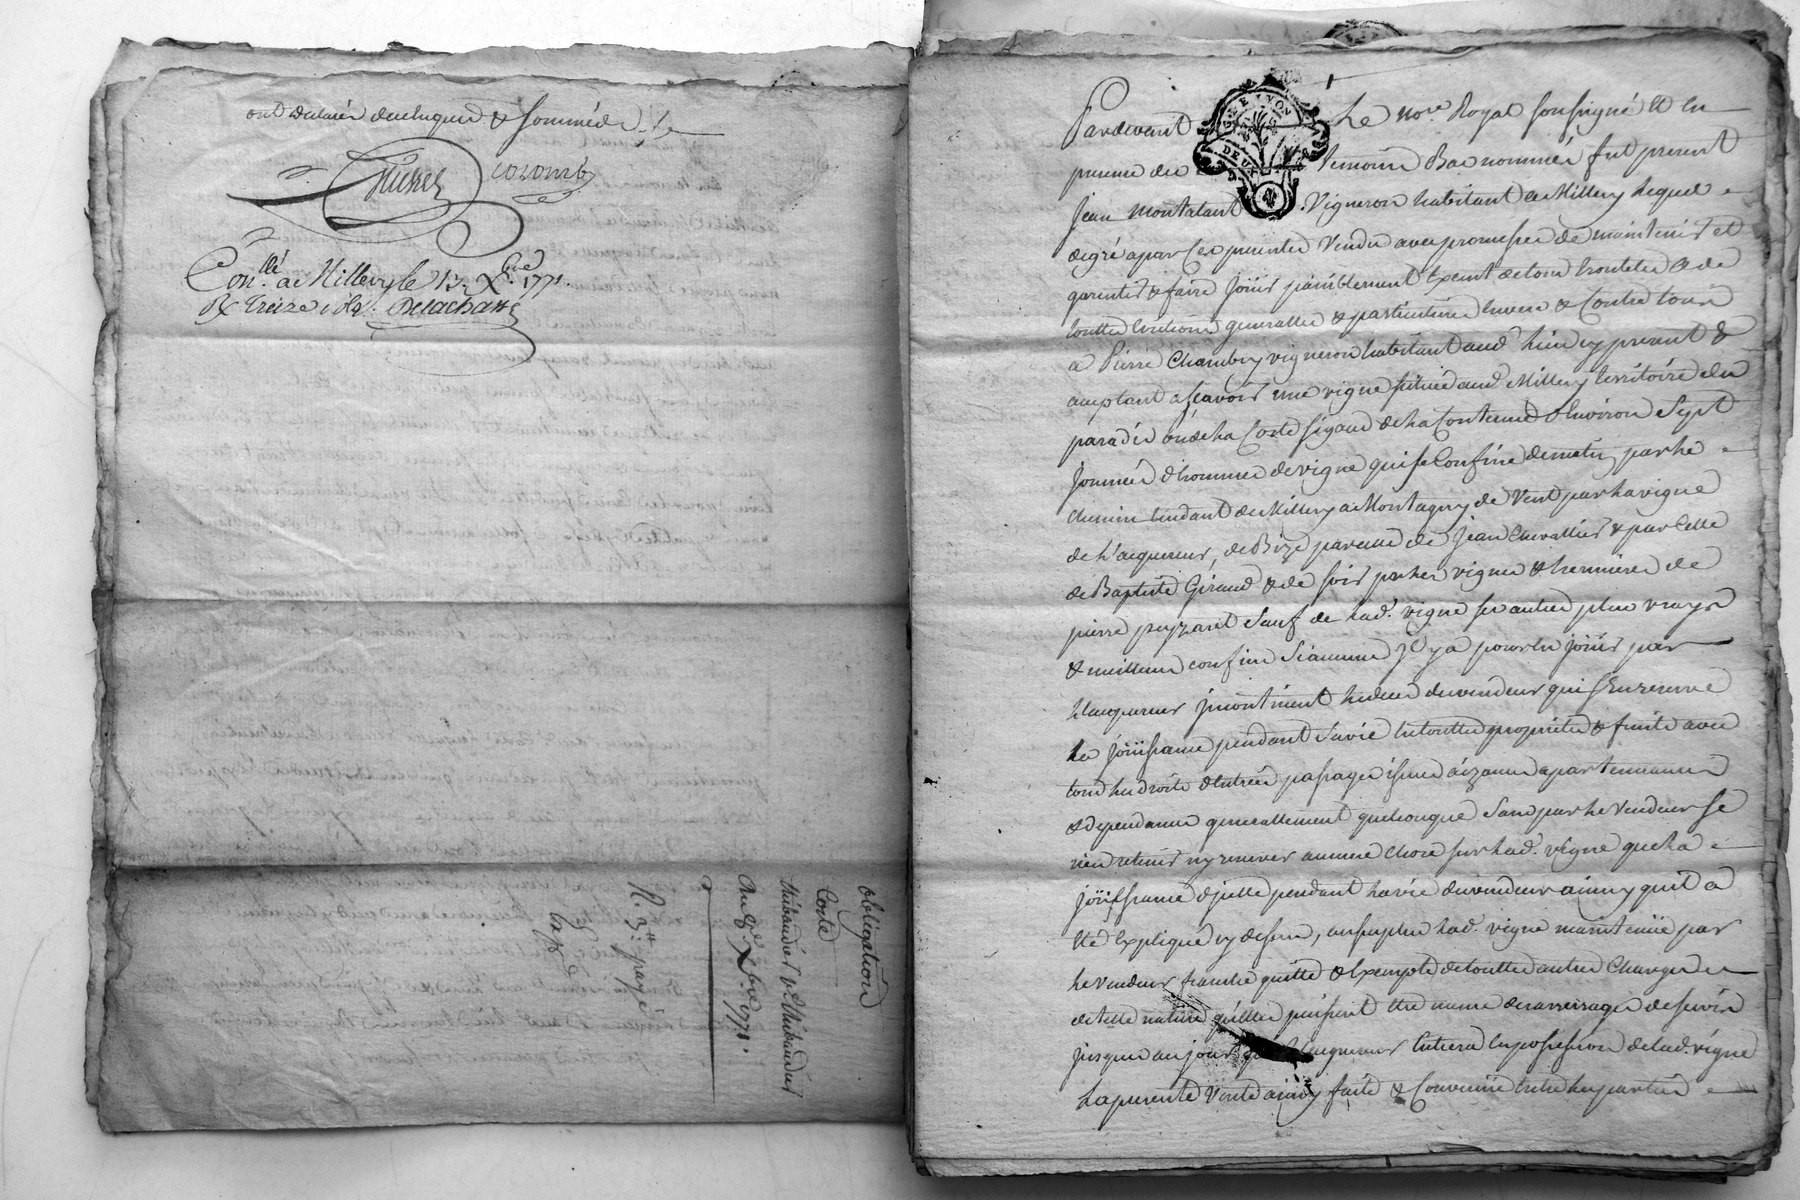 ont declarés de ce enquis & sommés
colomb
Con.llé a Millery le 13 Xbre 1771.
R. treize s. Delachasse
obligation
Coste
Thibaudier
Du 8e. Xbre 1771.
R. 3tt payé
GNE. LYON
DEUX S
Pardevant Le nore Royal soussigné et en
presence des temoins Bas nommés fut present
jean montalant Vigneron habitant a Millery lequel
de gré a par ces presentes Vendu avec promesses de maintenir et
garentir & faire joüir paisiblement Exemt de tous troubles & de
touttes Evictions generalles & particulieres Envers & Contre tous
a Pierre Chambry vigneron habitant aud. lieu cy present &
acceptant asscavoir une vigne située aud. Millery territoire du
paradis ou de la Coste sigaud de la Contenue d'Environ Sept
journées d'hommes de vigne qui se Confine de matin par le
chemin tendant de Millery a Montagny de Vent par la vigne
de l'acquereur, de Bize par celle de jean Chevallier & par Celle
de Baptiste Giraud & de soir par les vignes & hermieres de
pierre peyzaret Sauf de lad. vigne ses autres plus vrays
& meilleurs confins Si aucuns jl y a pour en joüir par
l'acquereur jncontinent le deces du vendeur qui s'En reserve
la joüissance pendant Sa vie En toutte proprieté & fruits avec
tous les droits d'Entrées passages issues aizances apartenances
& dependances generallement quelconques Sans par le Vendeur se
rien retenir ny reserver aucune chose sur lad. vigne que la
joüissance d'jcelle pendant la vie du vendeur ainsy qu'il a
Eté Expliqué cy dessus, au surplus lad. vigne maintenüe par
le vendeur franche quitte & Exempte de touttes autres Charges
de telle nature qu'elles puissent être meme des arrerages de servis
jusques au jour que l'acquereur Entrera En possession de lad. vigne
La presente Vente ainsy faite & Convenüe Entre les parties